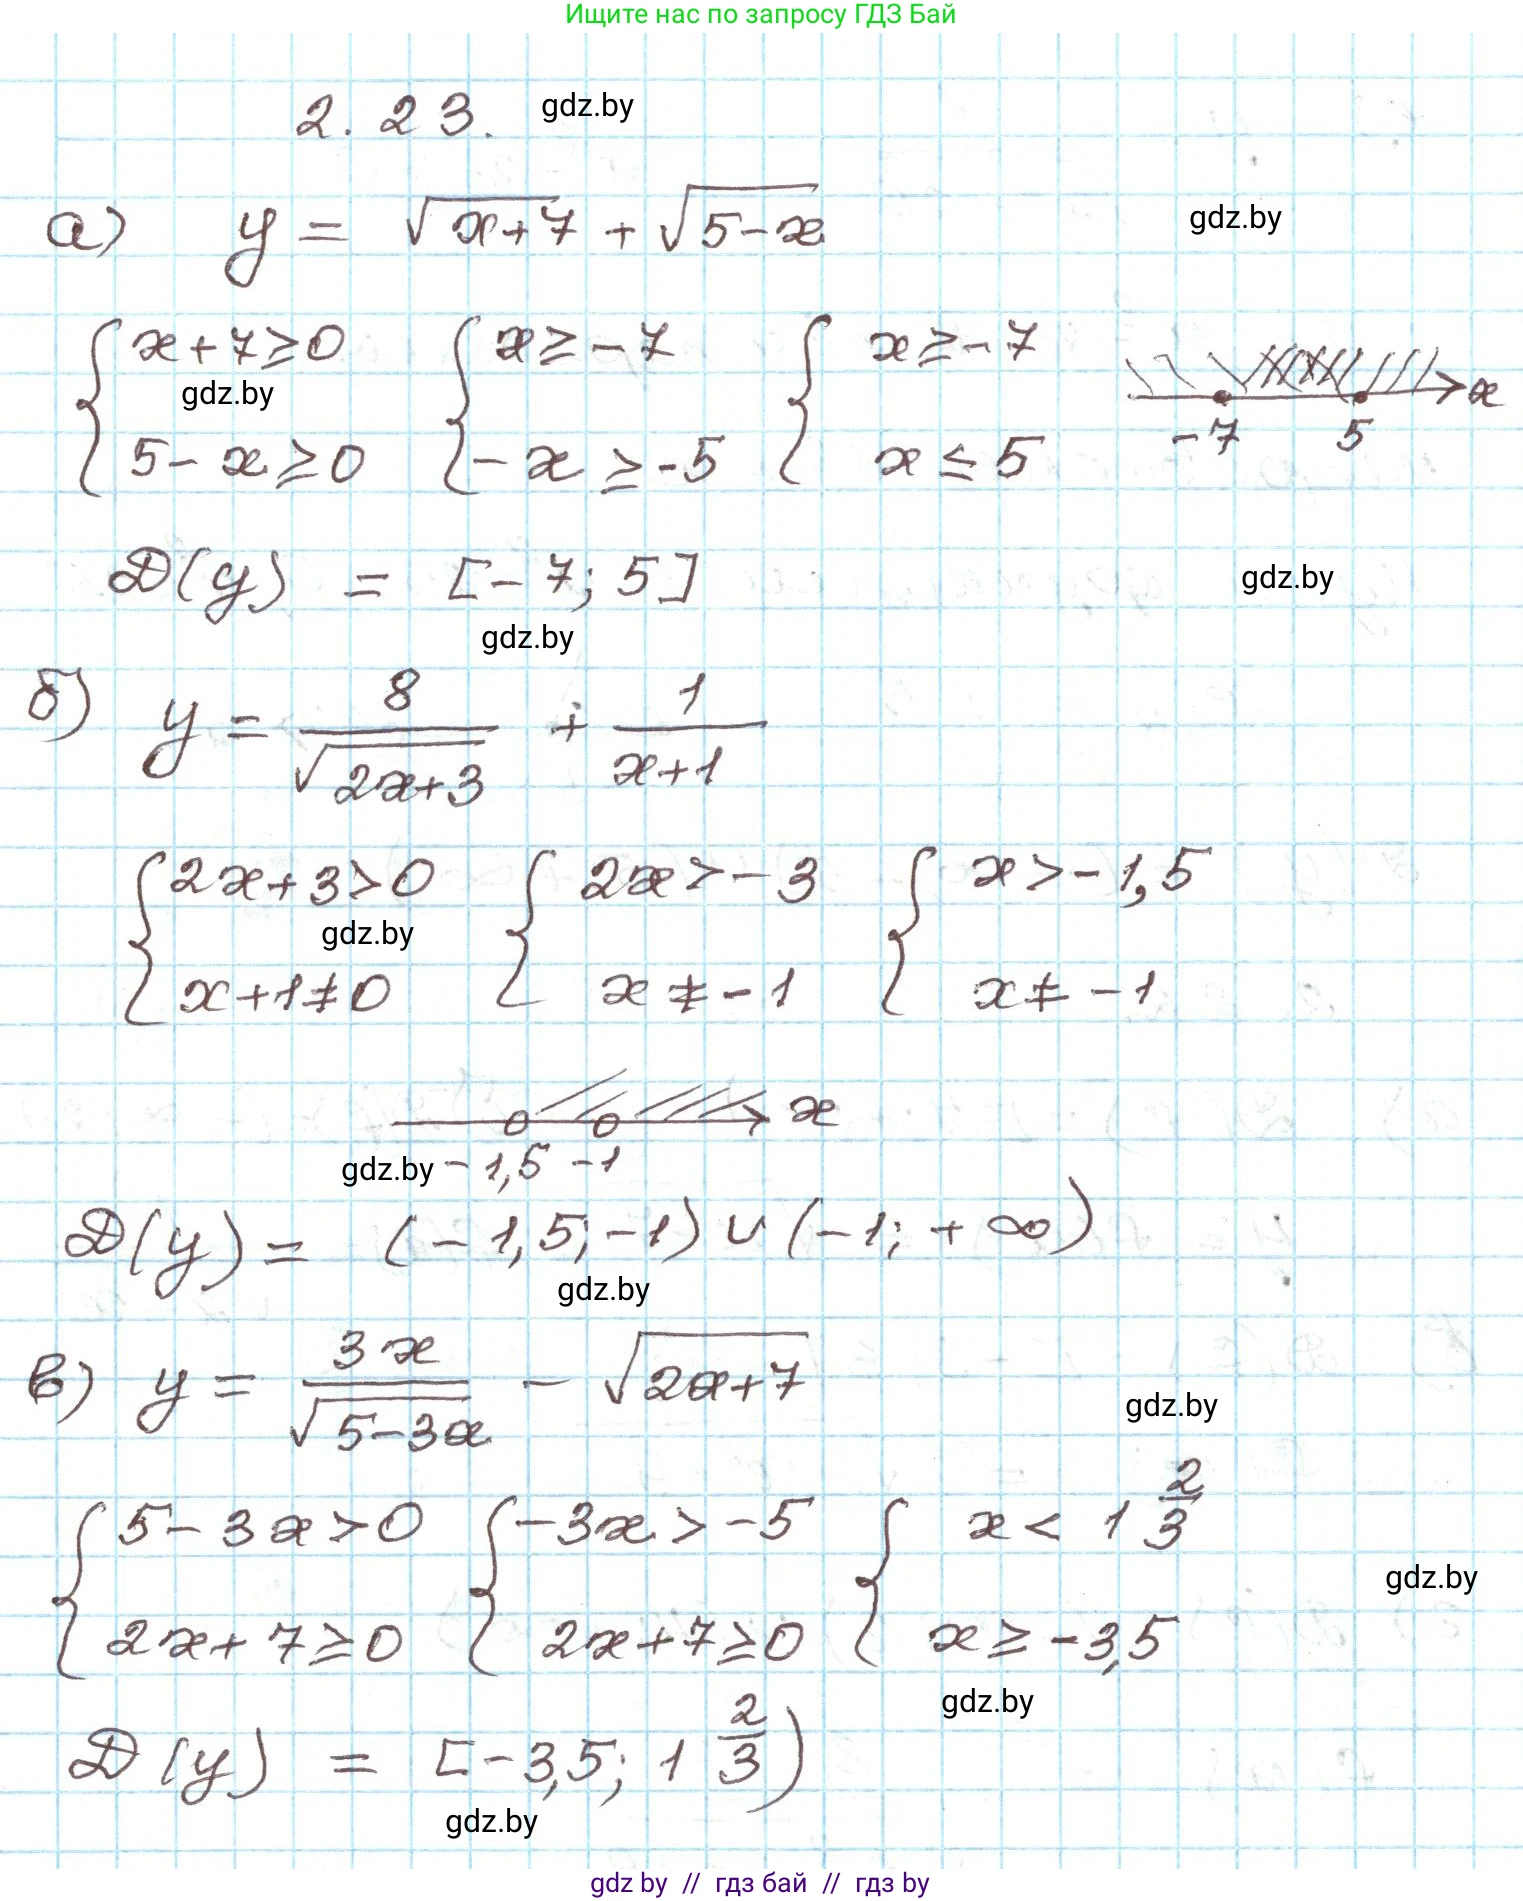 Ищите нас по запросу ГДЗ Бай
2.23. gdz.by
а) y = √(x+7) + √(5-x) gdz.by
{ x+7≥0 { x≥-7 { x≥-7
gdz.by x
5-x≥0 -x≥-5 x≤5 -7 5
D(y) = [-7; 5] gdz.by
gdz.by
б) y = 8/√(2x+3) + 1/(x+1)
{ 2x+3>0 { 2x>-3 { x>-1,5
gdz.by
x+1≠0 x≠-1 x≠-1
x
gdz.by -1,5 -1
D(y) = (-1,5; -1) ∪ (-1; +∞)
gdz.by
в) y = 3x/√(5-3x) - √(2x+7) gdz.by
{ 5-3x>0 { -3x>-5 { x < 1 2/3
gdz.by
2x+7≥0 2x+7≥0 x≥-3,5
gdz.by
D(y) = [-3,5; 1 2/3)
gdz.by
gdz by // гдз бай // гдз by